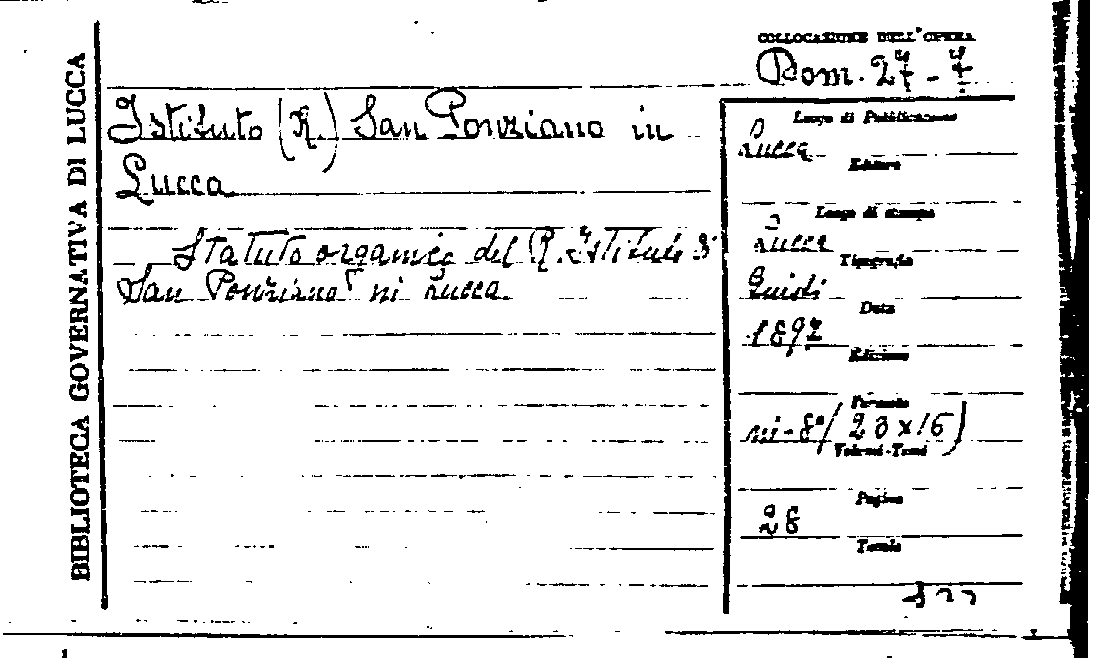 BIBLIOTECA GOVERNATIVA DI LUCCA
COLLOCAZIONE DELL'OPERA
Dom. 27 - 7
Istituto (R.) San Ponziano in
Lucca
Statuto organico del R. Istituto di
San Ponziano in Lucca.
Luogo di Pubblicazione
Lucca
Editore
Luogo di stampa
Lucca
Tipografia
Giusti
Data
1892
Edizione
Formato
in-8° (23×16)
Volumi-Tomi
Pagine
28
Tavole